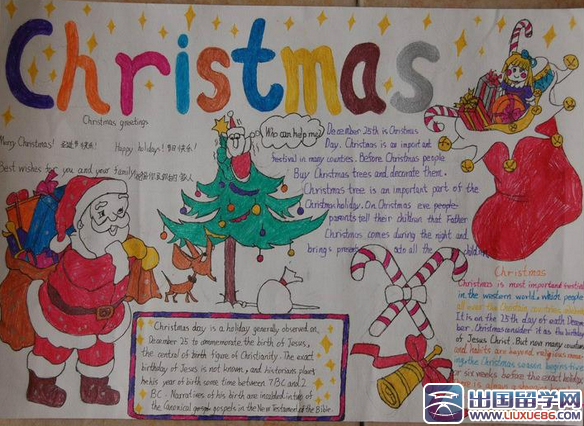 Christmas
Christmas greetings
Merry Christmas! 圣诞节快乐!
Happy holidays! 节日快乐!
Best wishes for you and your family
Who can help me?
December 25th is Christmas
Day. Christmas is an important
festival in many countries. Before Christmas people
Buy Christmas trees and decorate them.
Christmas tree is an important part of the
Christmas holiday. On Christmas eve people
parents tell their children that Father
Christmas comes during the night and
brings presents to all the children
Christmas day is a holiday generally observed on
December 25 to commemorate the birth of Jesus,
the central of birth figure of Christianity. The exact
birthday of Jesus is not known, and historians place
his year of birth some time between 7BC and 2
BC. Narratives of his birth are included in two of
the Canonical gospels in the New Testament of the Bible.
Christmas
Christmas is most important festival
in the western world, which people
all over the
It is on the 25th day of each December
ber. Christmas consider it as the birthday
of Jesus Christ. But now many customs
and habits are beyond religious
ng. the Christmas season begins five
or six weeks before the exact holiday
出国留学网
www.liuxue86.com